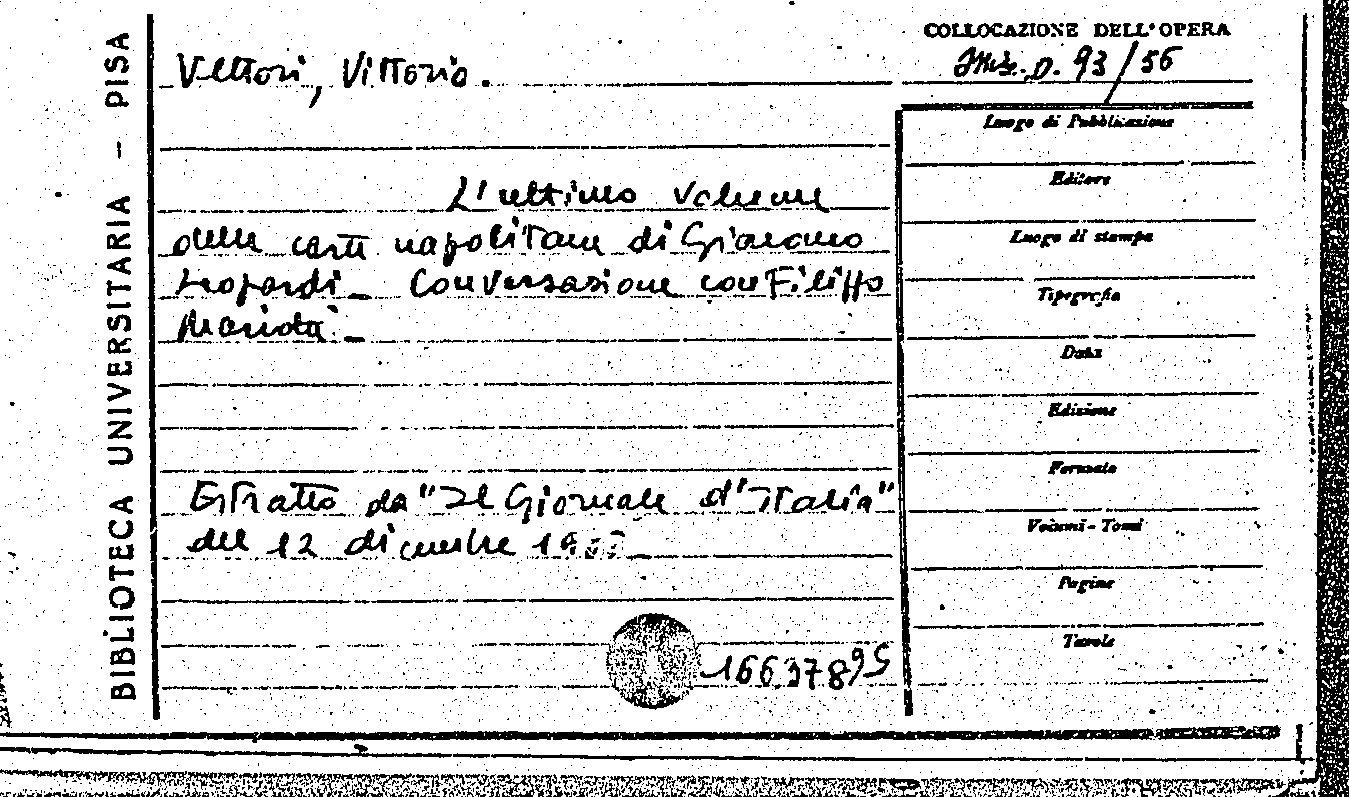 BIBLIOTECA UNIVERSITARIA - PISA
COLLOCAZIONE DELL'OPERA
Misc. D. 93/56
Vettori, Vittorio.
L'ultimo volume
delle carte napolitane di Giacomo
Leopardi_ Conversazione con Filippo
Mariotti_
Estratto da "Il Giornale d'Italia"
del 12 dicembre
166378 95
Luogo di Pubblicazione
Editore
Luogo di stampa
Tipografia
Data
Edizione
Formato
Volumi - Tomi
Pagine
Tavole